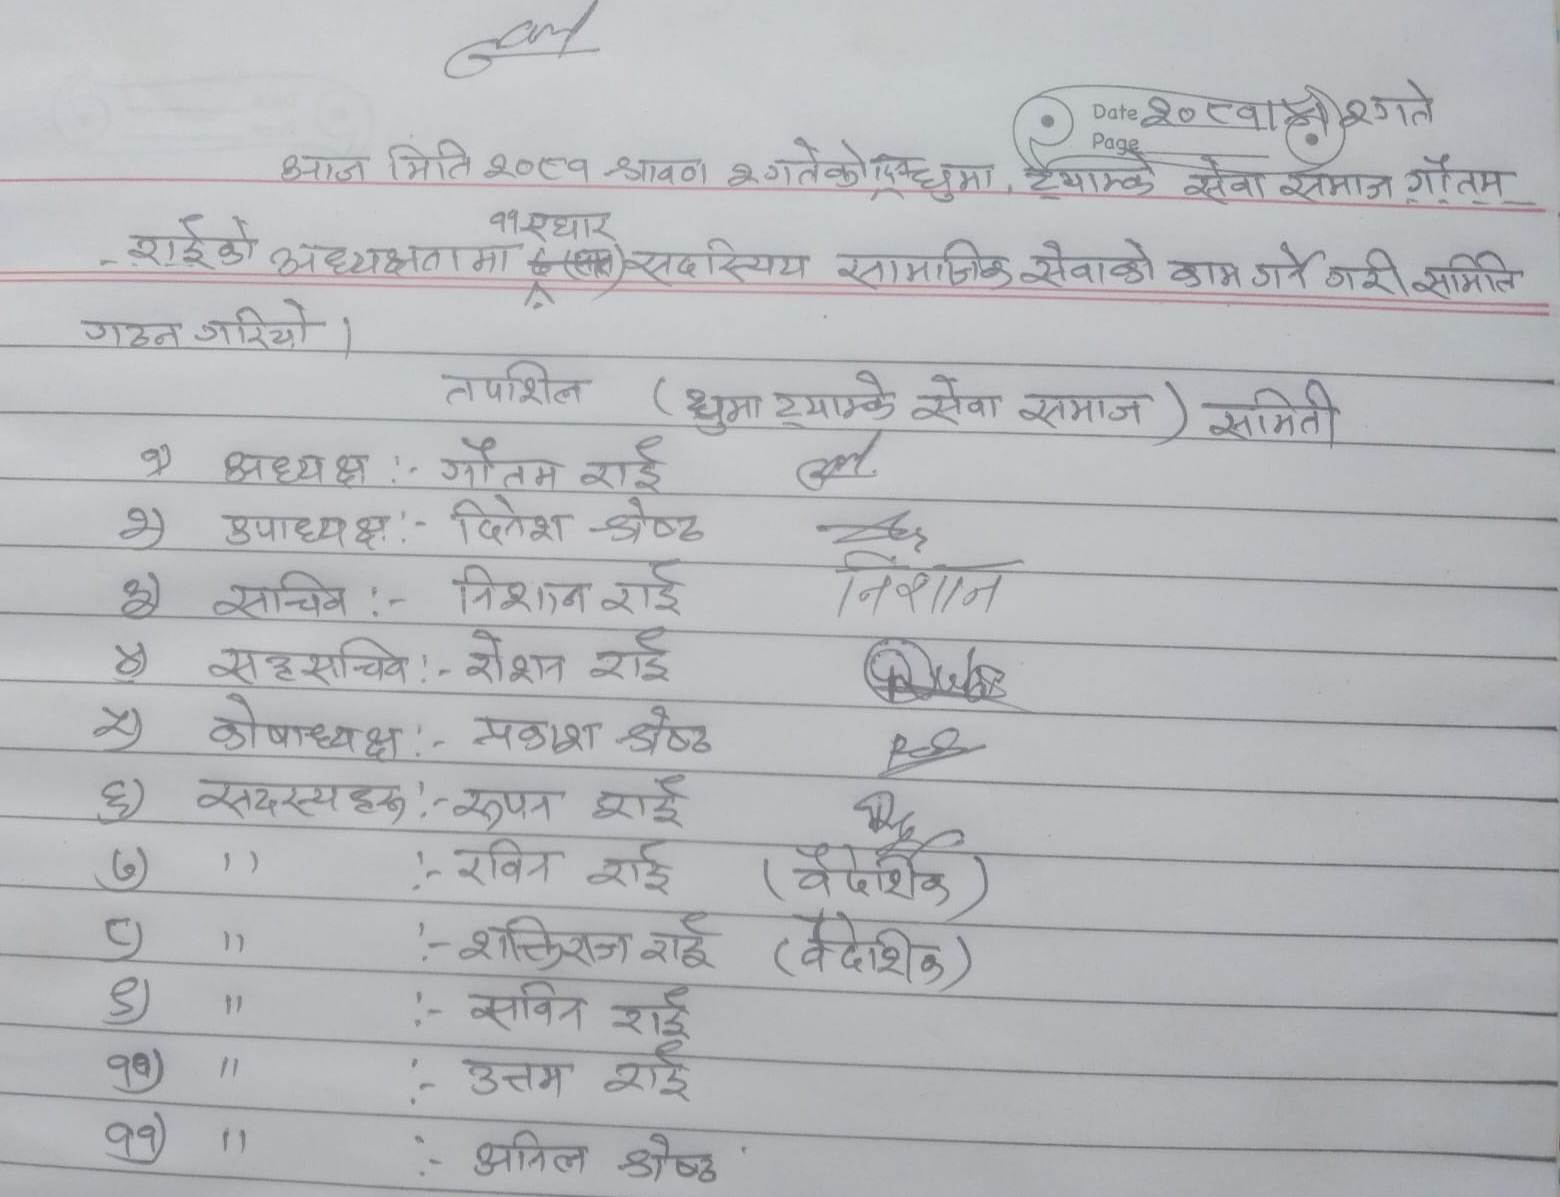 Date २०८१/४/२गते
Page
आज मिति २०८१ श्रावण २ गतेको दिन धुमा, ट्याम्के सेवा समाज गौतम
११ एघार
राईको अध्यक्षतामा सदस्यिय सामाजिक सेवाको काम गर्ने गरी समिति
गठन गरियो।
तपशिल (धुमा ट्याम्के सेवा समाज) समिती
१) अध्यक्ष :- गौतम राई
२) उपाध्यक्ष :- दिनेश श्रेष्ठ
३) सचिव :- निशान राई निशान
४) सहसचिव :- रोशन राई
५) कोषाध्यक्ष :- प्रकाश श्रेष्ठ
६) सदस्यहरू :- रूपन राई
७) " :- रविन राई (वैदेशिक)
८) " :- शक्तिराज राई (वैदेशिक)
९) " :- सविन राई
१०) " :- उत्तम राई
११) " :- अनिल श्रेष्ठ